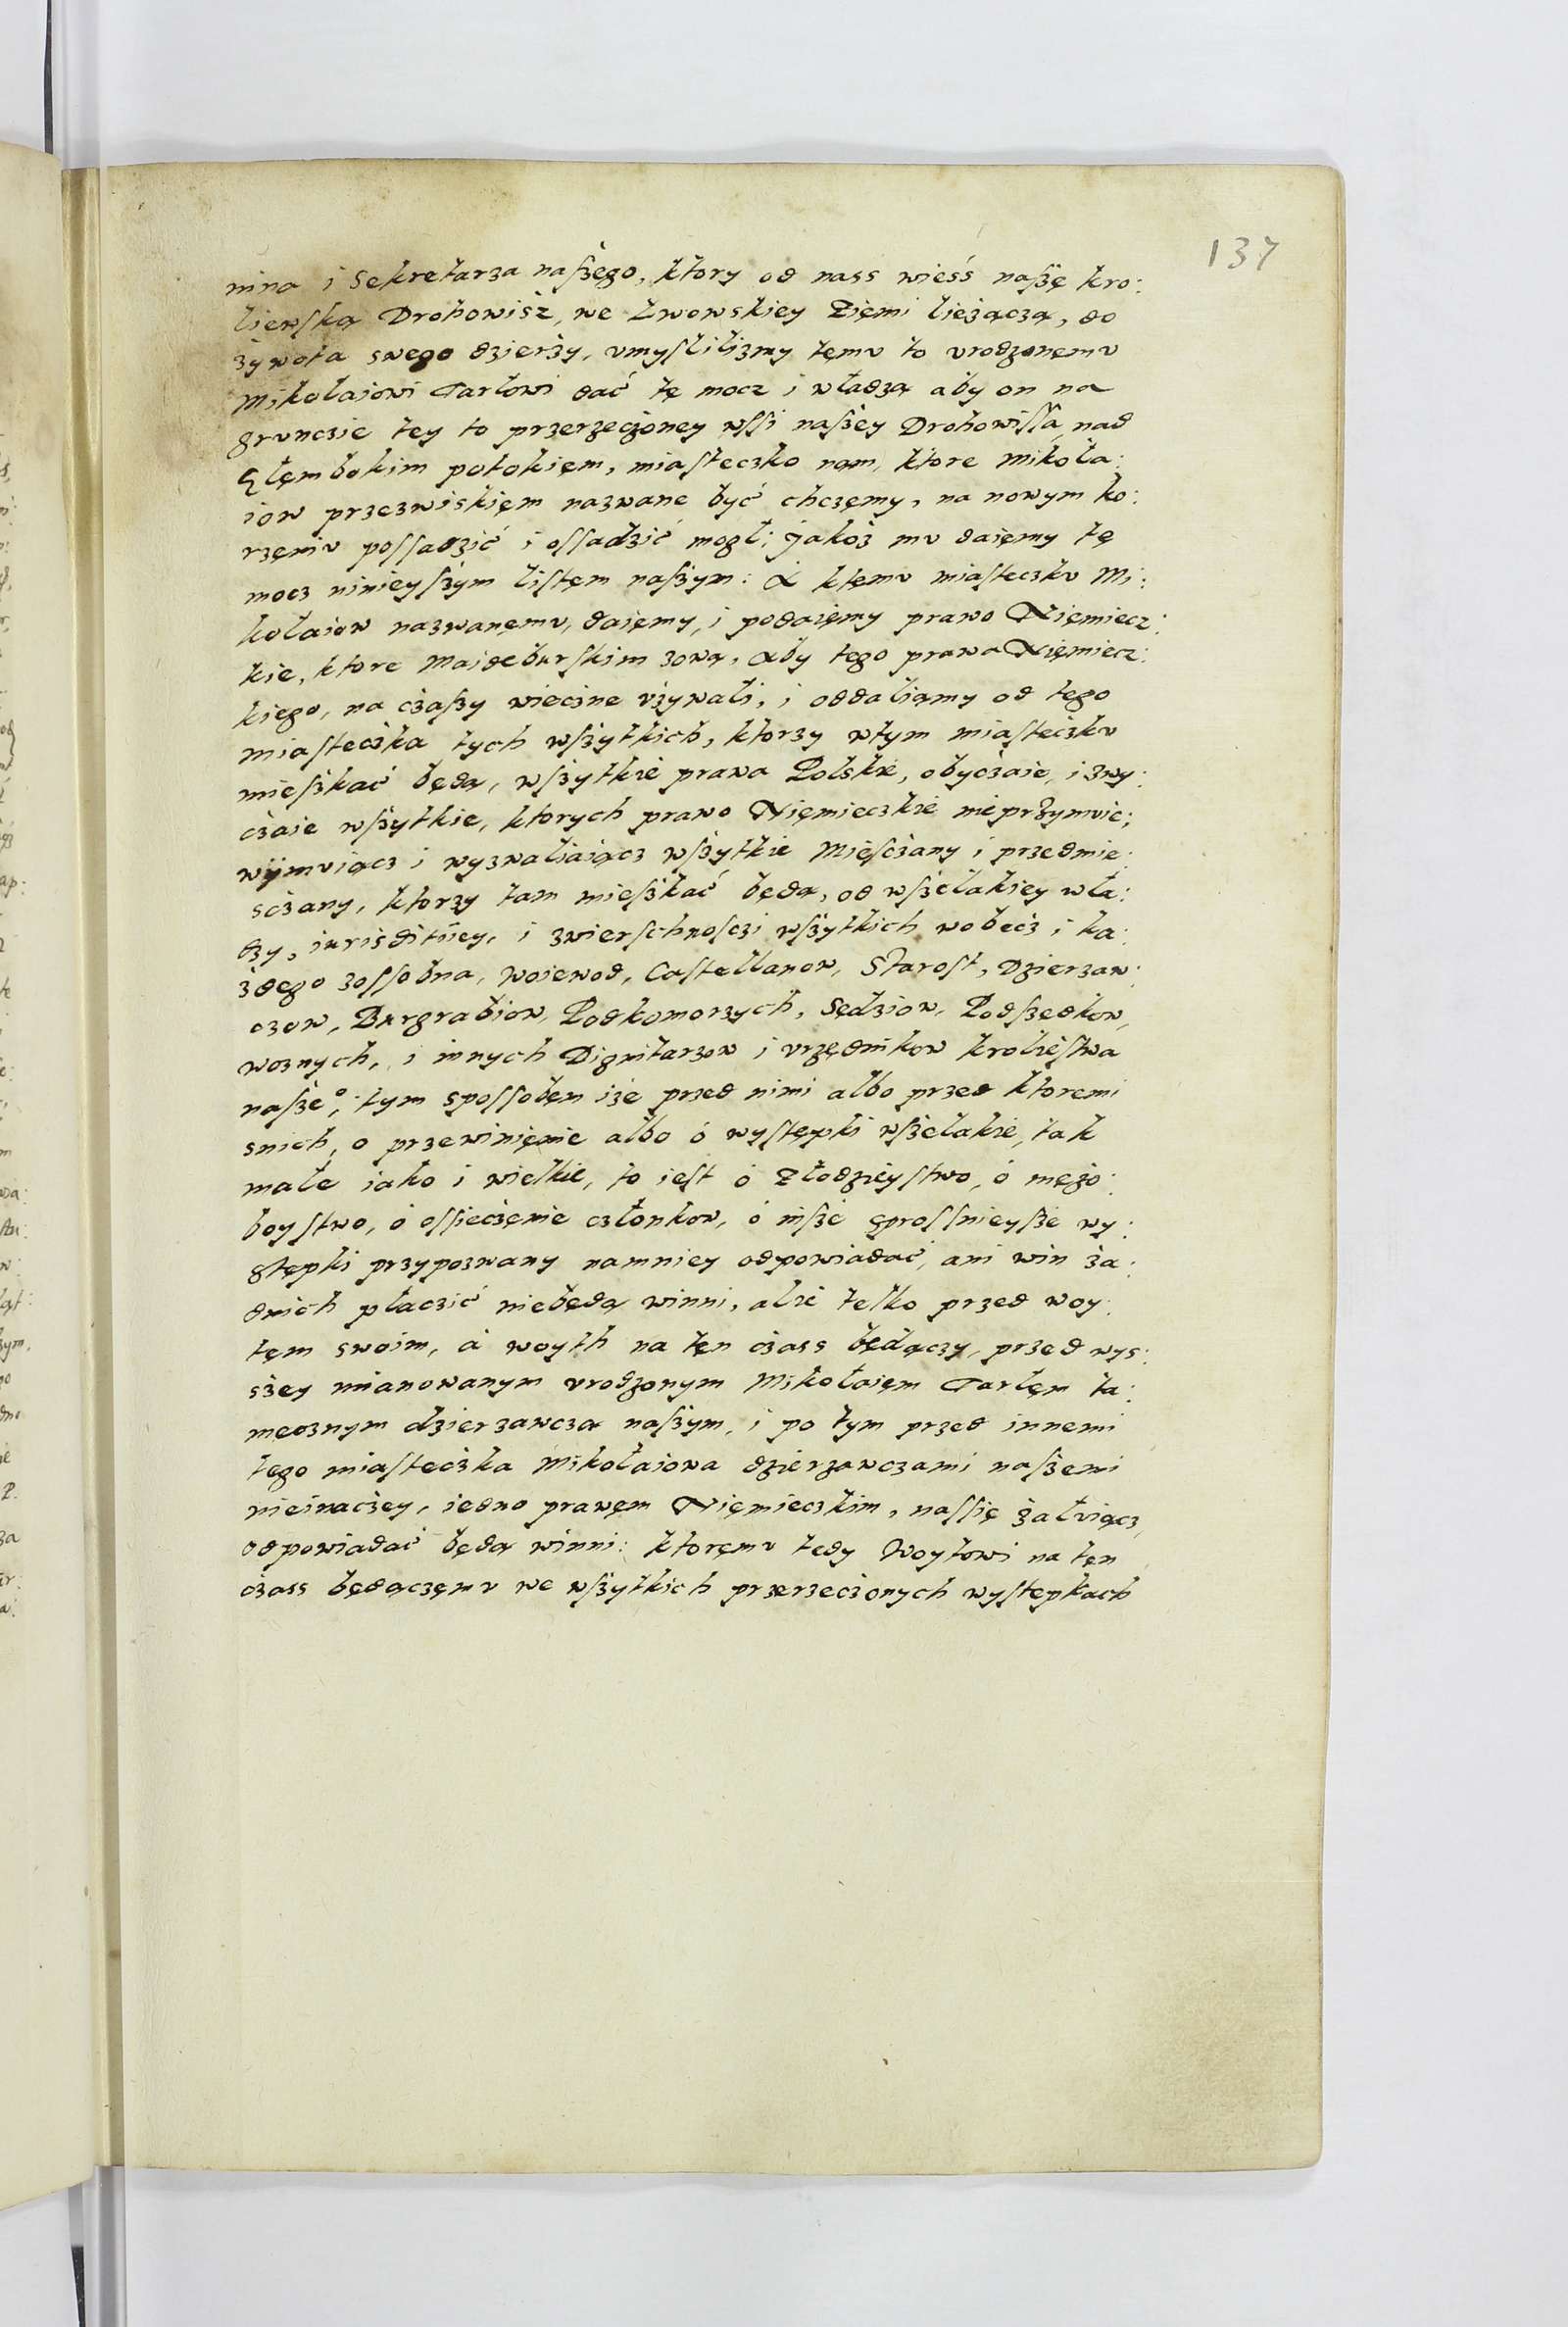 137
nina i Sekretarza naſzego, ktory od nass wieśś naſzę kro:
liewską Drohowisz, we Lwowskiey Ziemi lieżączą, do
żywota swego dzierży, vmyſlilizmy tęmv to vrodzonęmv
Mikołaiowi Tarłowi dać tę mocz i władzą aby on na
grvnczie tey to przerzeczoney wſſi naſzey Drohowiſſa, nad
Głęmbokim potokięm, miaſteczko nąm, ktore Mikoła:
iow przezwiskięm nazwane być chczęmy, na nowym ko:
rzęniv poſſadzić i oſſadzić mogł; jakoż mv daięmy tę
mocz ninieyſzym liſtęm naſzym: A ktęmv miaſteczkv Mi:
kołaiow nazwanęmv, daięmy, i podaięmy prawo Nięmiecz:
kie, ktore Maideburskim zową, aby tego prawa Nięmiecz:
kiego, na czaſzy wieczne vżywali, i oddaliąmy od tego
miaſteczka tych wſzytkich, ktorzy wtym miaſteczkv
mieſzkać będą, wſzytkie prawa Polskie, obyczaie, i zwy:
czaie wſzytkie, ktorych prawo Nięmieczkie nieprzymvie;
wijmviącz i wyzwaliaiącz wſzytkie Mieſczany i przedmie:
sczany, ktorzy tam mieſzkać będą, od wſzelakiey wła:
dzy, iurisditiiey, i zwierſchnoſczi wſzytkich wobecz i ka:
żdego zoſſobna, Woiewod, Caſtellanow, Staroſt, Dzierzaw:
czow, Burgrabiow, Podkomorzych, Sędziow, Podſzędkow,
woznych, i innych Dignitarzow i vrzędnikow krolieſtwa
naſze°; tym spoſſobęm iże przed nimi albo przed ktoremi
snich, o przewinięnie albo ó wyſtępki wſzelakie, tak
małe iako i wielkie, to ieſt ó Złodzieyſtwo, ó mężo:
boyſtwo, ó oſſieczęnie członkow, ó inſze sproſſnieyſze wy:
stępki przypozwany namniey odpowiadać, ani win ża:
dnich płaczić niebędą winni, alie telko przed woy:
tęm swoim, á woyth na tęn czass będączy, przed wys:
szey mianowanym vrodzonym Mikołaięm Tarłęm ta:
mecznym dzierzawczą naſzym, i po tym przed innemi
tego miaſteczka Mikołaiowa dzierzawczami naſzemi
nieinaczey, iedno prawęm Nięmieczkim, naſſię żałviącz,
odpowiadać będą winni: ktoręmv tedy Woytowi na tęn
czass będączęmv we wſzytkich przerzeczonych wyſtepkach